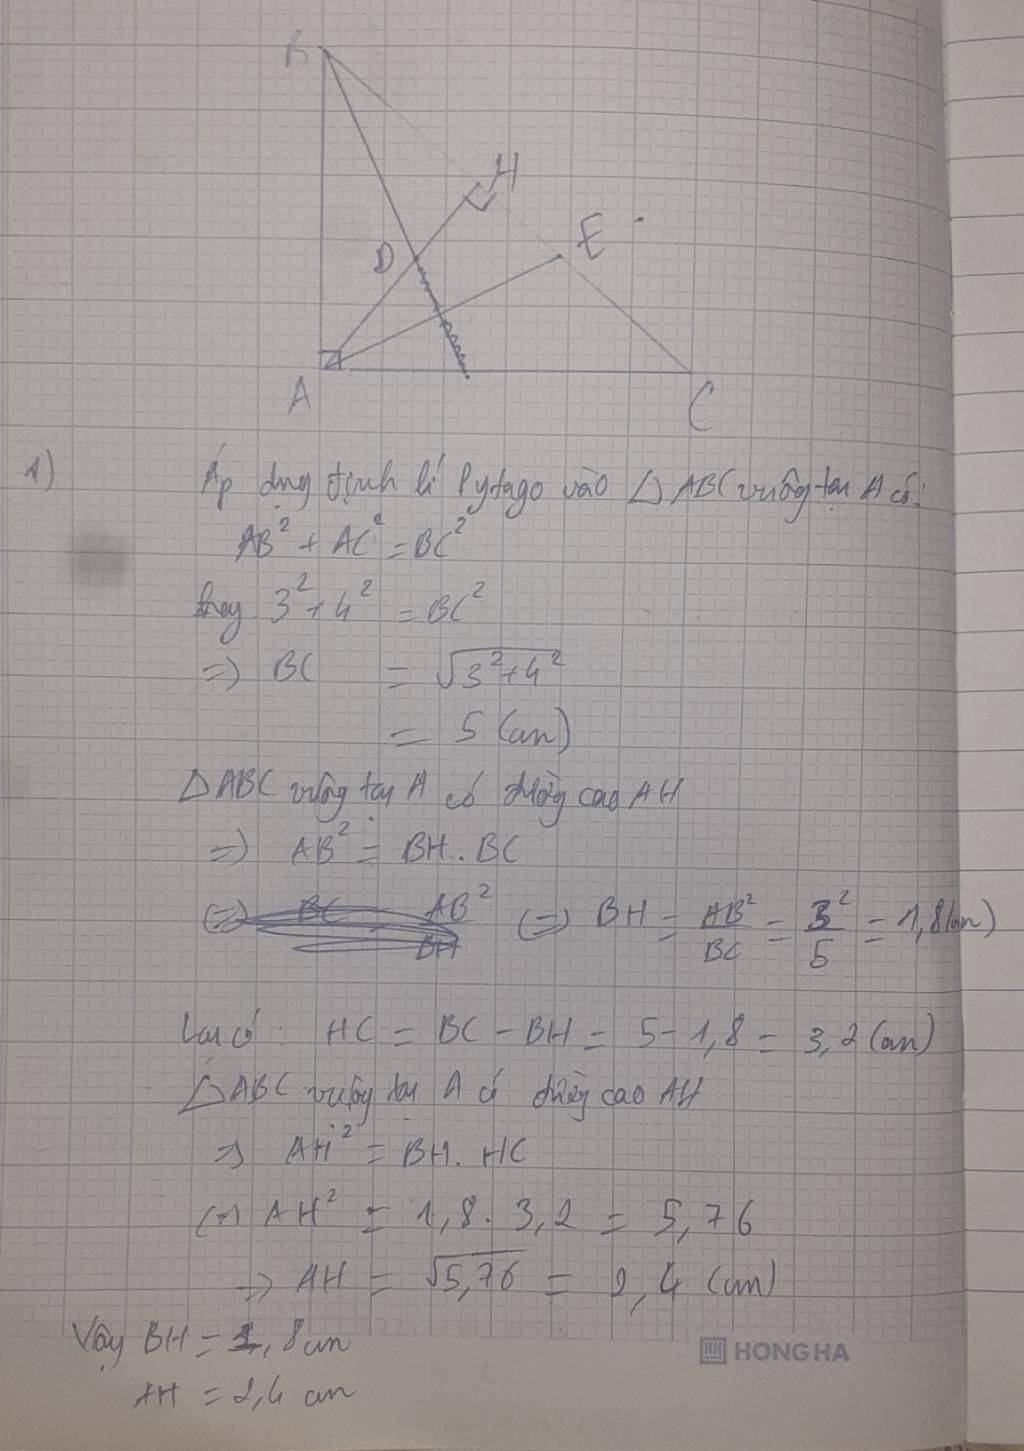 B
H
E
D
A
C
1) Áp dụng định lí Pytago vào △ABC vuông tại A có:
AB² + AC² = BC²
hay 3² + 4² = BC²
=> BC = √3²+4²
= 5 (cm)
△ABC vuông tại A có đường cao AH
=> AB² = BH. BC
(=) BH = AB²/BC = 3²/5 = 1,8 (cm)
Lại có: HC = BC - BH = 5 - 1,8 = 3,2 (cm)
△ABC vuông tại A có đường cao AH
=> AH² = BH. HC
(=) AH² = 1,8. 3,2 = 5,76
=> AH = √5,76 = 2,4 (cm)
Vậy BH = 1,8 cm
HONG HA
AH = 2,4 cm